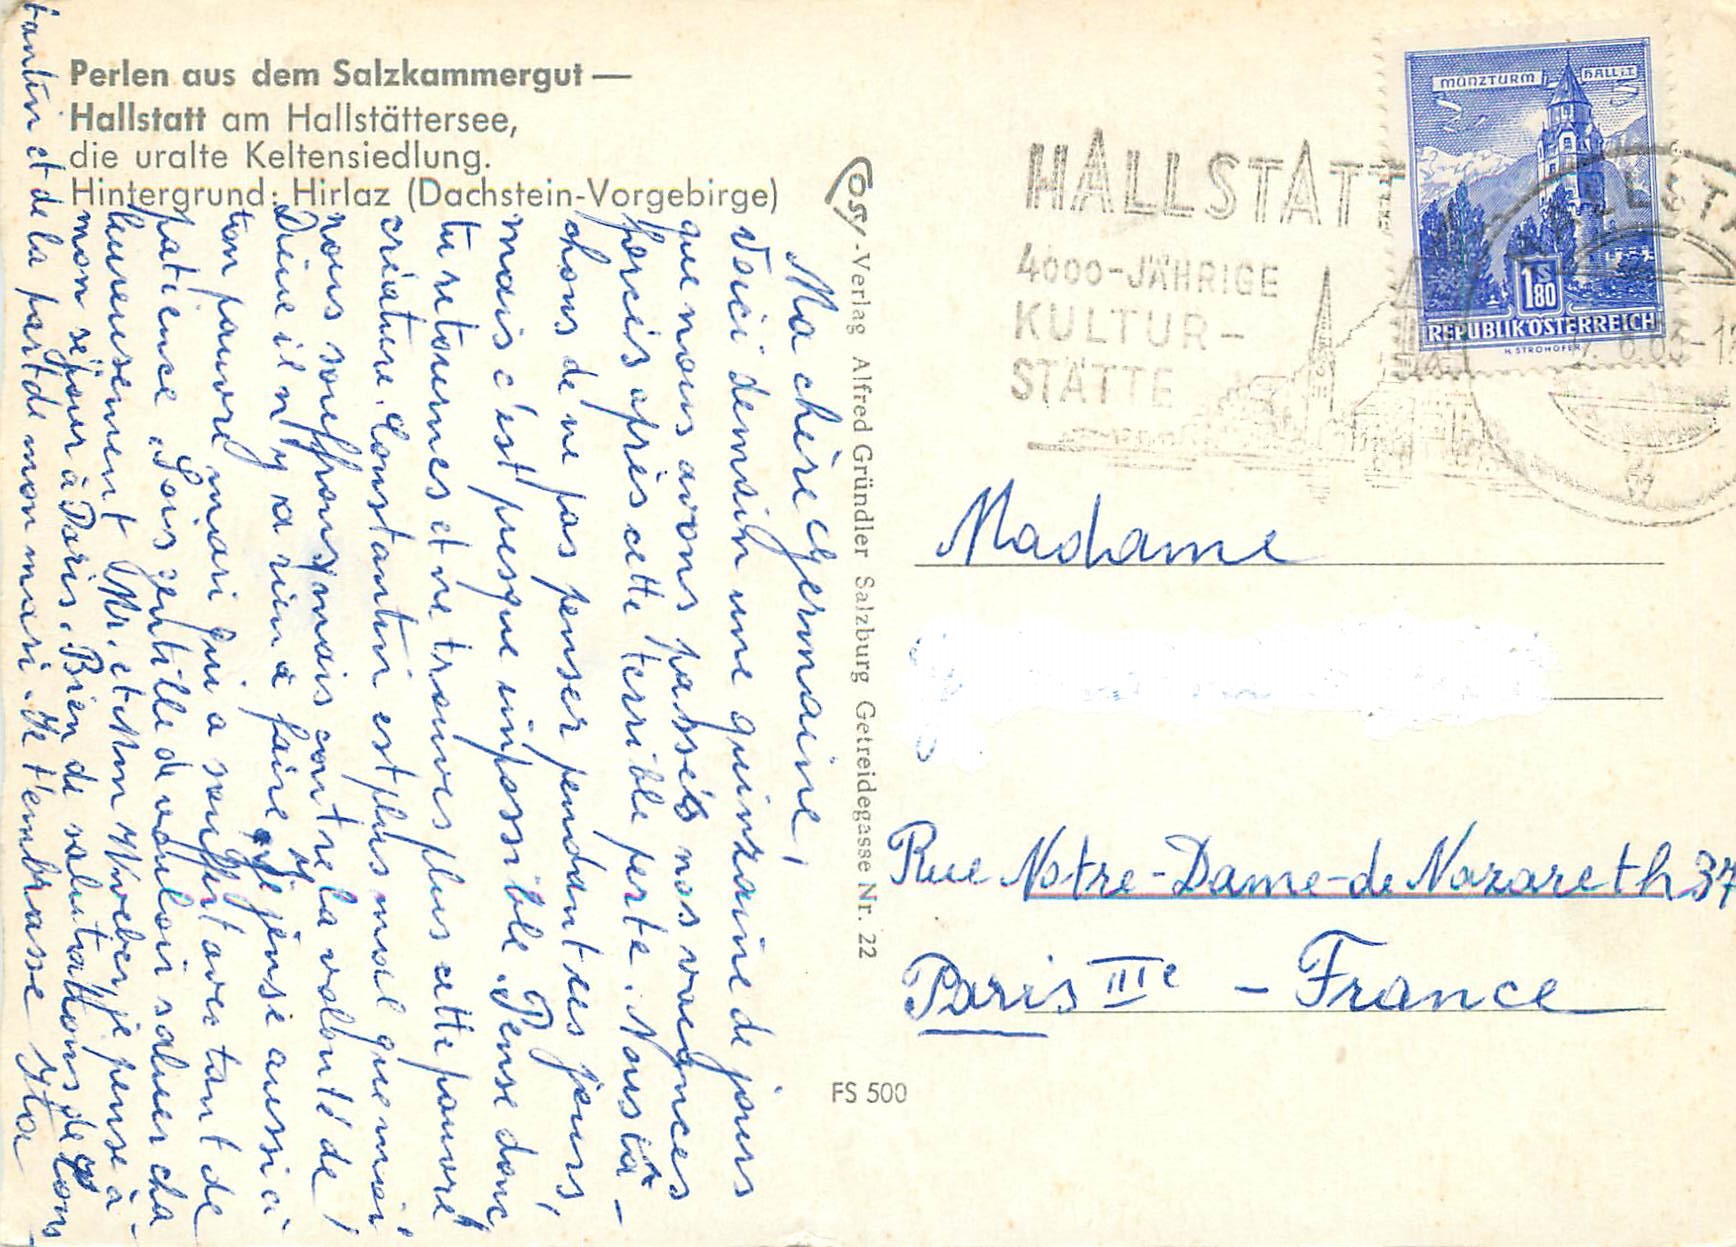 Perlen aus dem Salzkammergut —
Hallstatt am Hallstättersee,
die uralte Keltensiedlung.
Hintergrund: Hirlaz (Dachstein-Vorgebirge)
Ma chère Germaine,
Voici demain une quinzaine de jours
que nous avons passés nos vacances
forcés après cette terrible perte. Nous tâ-
chons de ne pas penser pendant ces jours,
mais c'est presque impossible. Pense donc
tu retournes et ne trouves plus cette pauvre
créature. Constantin est plus mal que moi
nous souffrons, mais contre la volonté de
Dieu il n'y a rien à faire. Je pense aussi ici
ton pauvre mari qui a souffert avec tant de
patience. Sois gentille de vouloir saluer cha
leureusement Mr. et Mm je pense à
mon séjour à Paris. Bien de salutations de Cons
tantin et de la part de mon mari. Je t'embrasse
Cosy-Verlag Alfred Gründler Salzburg Getreidegasse Nr. 22
FS 500
HALLSTATT
4000-JÄHRIGE
KULTUR-
STÄTTE
MÜNZTURM HALL i.T.
1 S 80
REPUBLIK ÖSTERREICH
H. STROHOFER
Madame
Rue Notre-Dame-de Nazareth 37
Paris IIIe – France